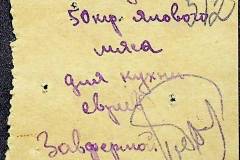 50 кгр. ялового
мяса
для кухни
евреев
Завфермой